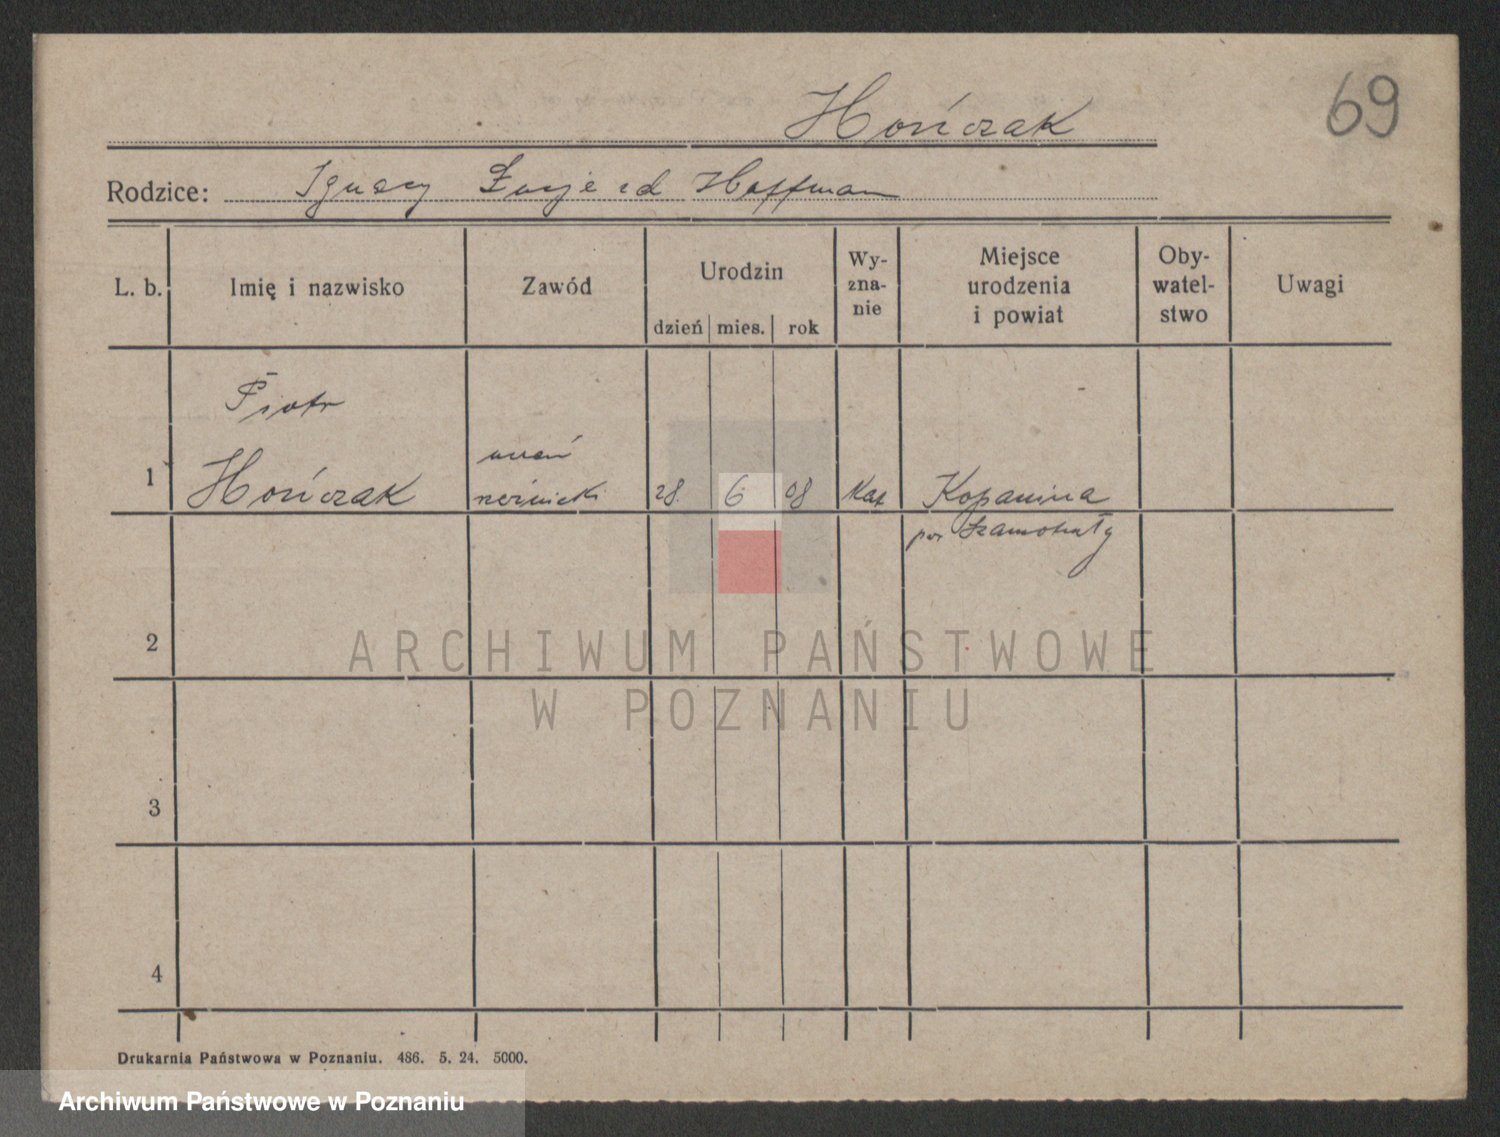 69
Hończak
Rodzice: Ignacy Łucje zd Hoffmann
L. b.
Imię i nazwisko
Zawód
Urodzin
dzień mies. rok
Wy-
zna-
nie
Miejsce
urodzenia
i powiat
Oby-
watel-
stwo
Uwagi
Piotr
1 Hończak
uczeń
rzeźnicki
28. 6 08
Kat
Kopanina
pow Szamotuły
2
3
4
ARCHIWUM PAŃSTWOWE
W POZNANIU
Drukarnia Państwowa w Poznaniu. 486. 5. 24. 5000.
Archiwum Państwowe w Poznaniu